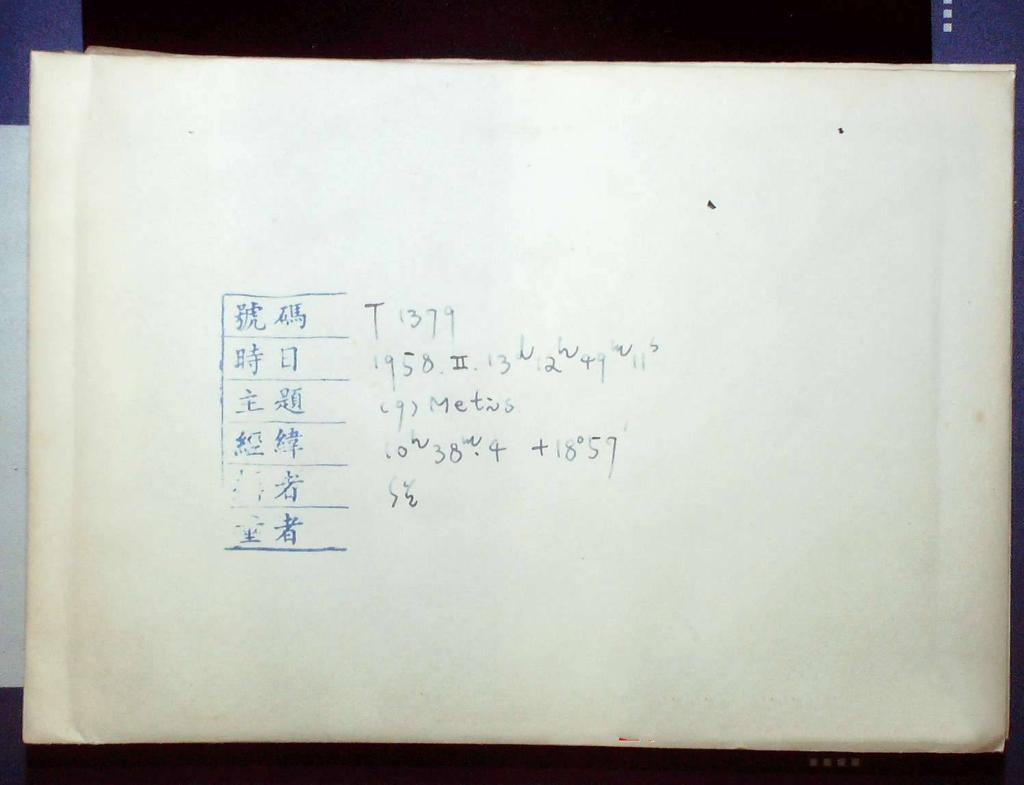 號碼 T 1379
時日 1958. II. 13ᵈ 12ʰ 49ᵐ 11ˢ
主題 (9) Metis
經緯 10ʰ 38ᵐ.4 +18°57'
者
量者